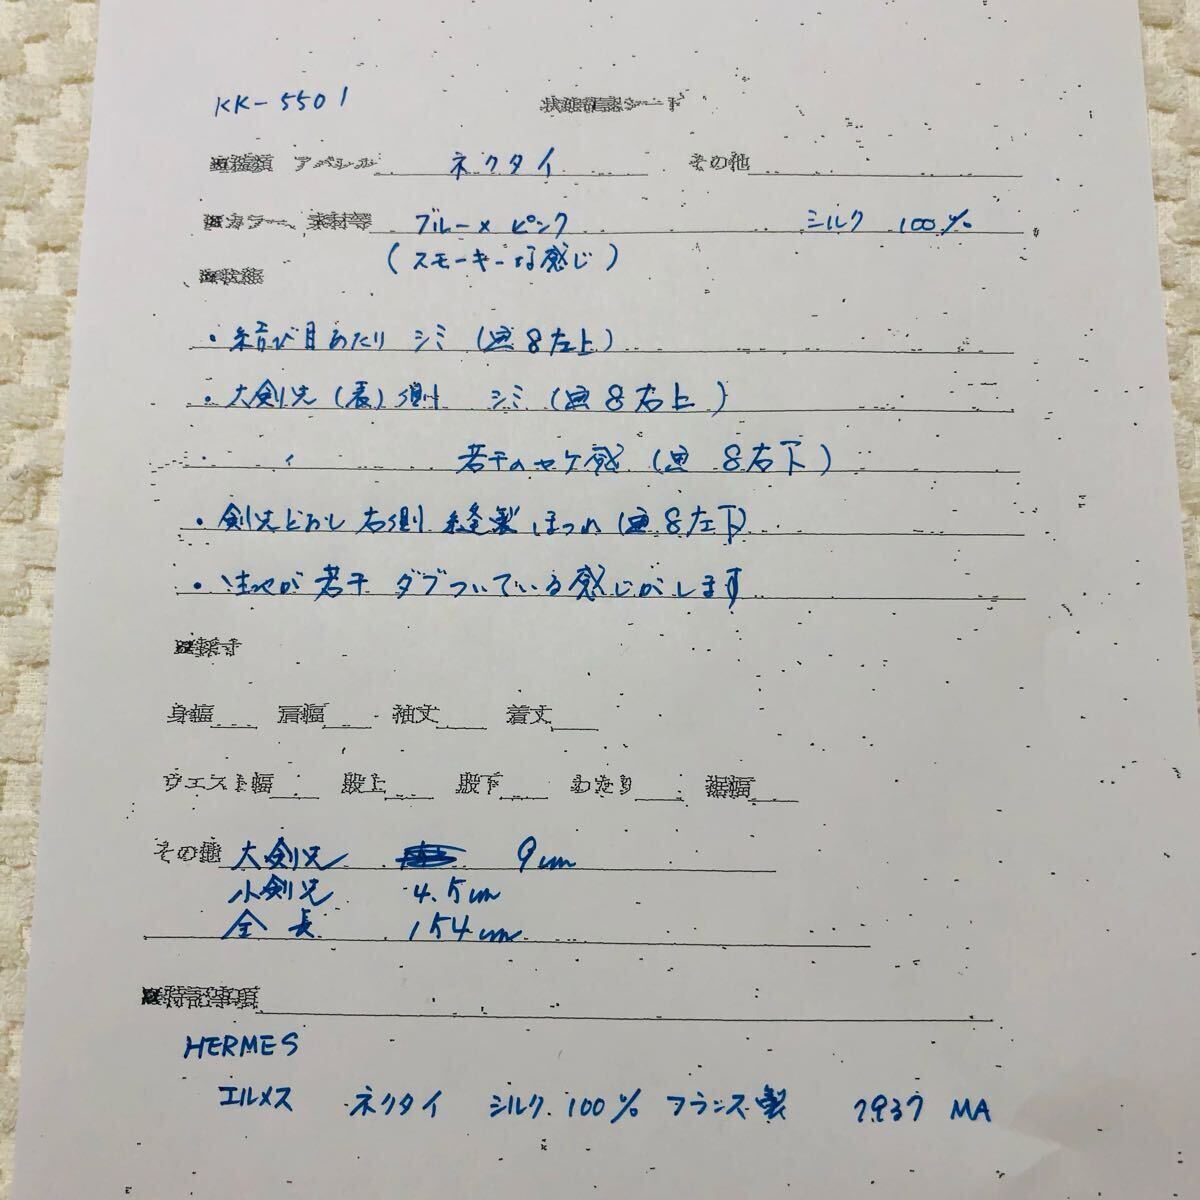 KK-5501 状態確認シート
■種類 アパレル ネクタイ その他
■カラー、素材等 ブルー×ピンク シルク 100%
(スモーキーな感じ)
■状態
・結び目あたり シミ (画8左上)
・大剣先(表)側 シミ (画8右上)
若干のヤケ感 (画 8右下)
・剣先どおし 右側 縫製 ほつれ (画8左下)
・ 若干 ダブついている感じがします
■採寸
身幅 肩幅 袖丈 着丈
ウエスト幅 股上 股下 わたり 裾幅
その他 大剣先 9cm
小剣先 4.5cm
全長 154cm
■特記事項
HERMES
エルメス ネクタイ シルク 100% フランス製 7937 MA